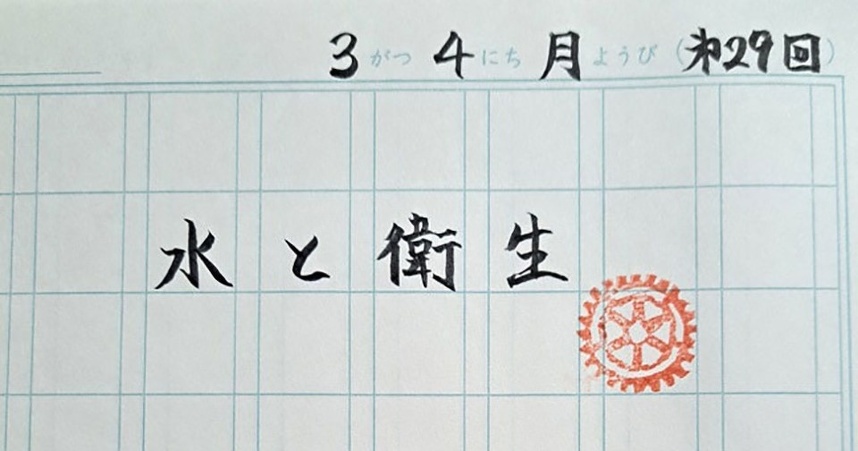 3がつ4にち月ようび(第29回)
水と衛生